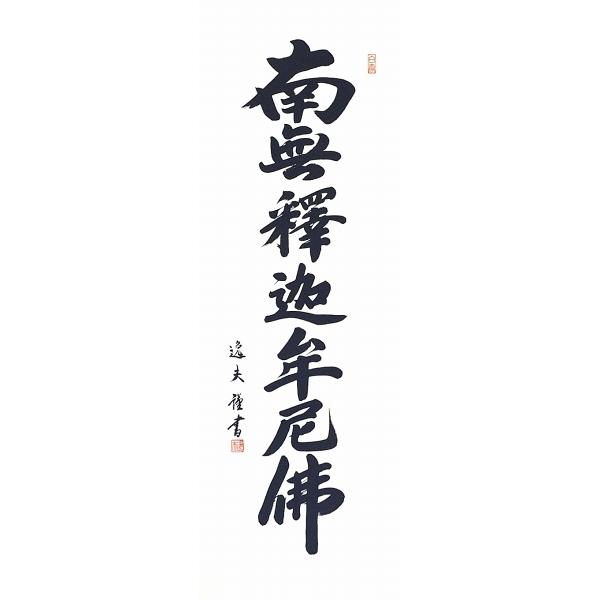 南無釋迦牟尼佛
逸夫謹書